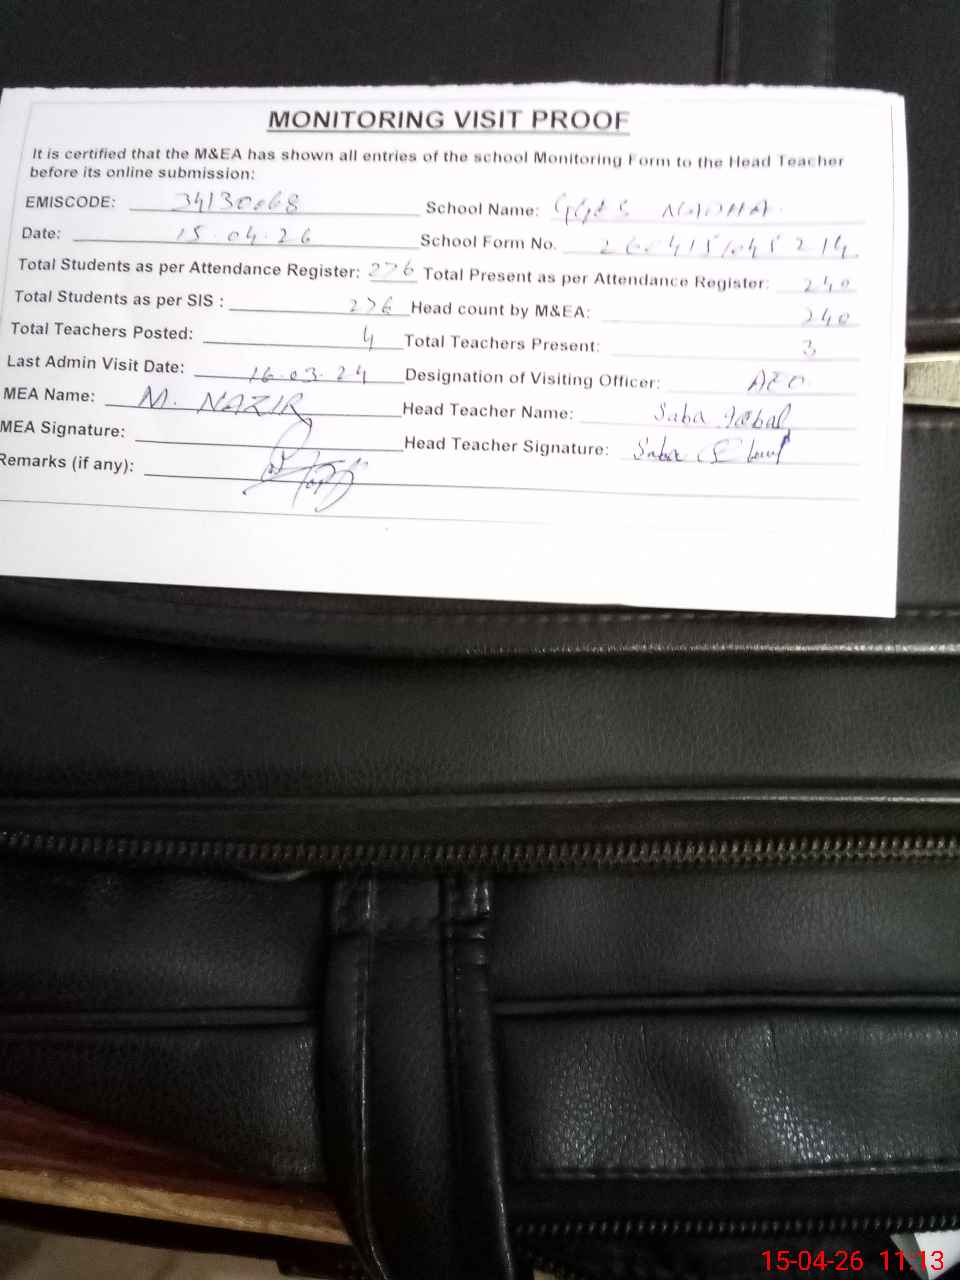 MONITORING VISIT PROOF
It is certified that the M&EA has shown all entries of the school Monitoring Form to the Head Teacher
before its online submission:
EMISCODE: 34130068 School Name: NADHA
Date: 15.04.26 School Form No. 2604151045214
Total Students as per Attendance Register: 276 Total Present as per Attendance Register: 240
Total Students as per SIS : 276 Head count by M&EA: 240
Total Teachers Posted: 4 Total Teachers Present: 3
Last Admin Visit Date: 16.03.24 Designation of Visiting Officer: AEO
MEA Name: M. NAZIR Head Teacher Name: Saba Iqbal
MEA Signature: Head Teacher Signature: Saba
Remarks (if any):
15-04-26 11:13